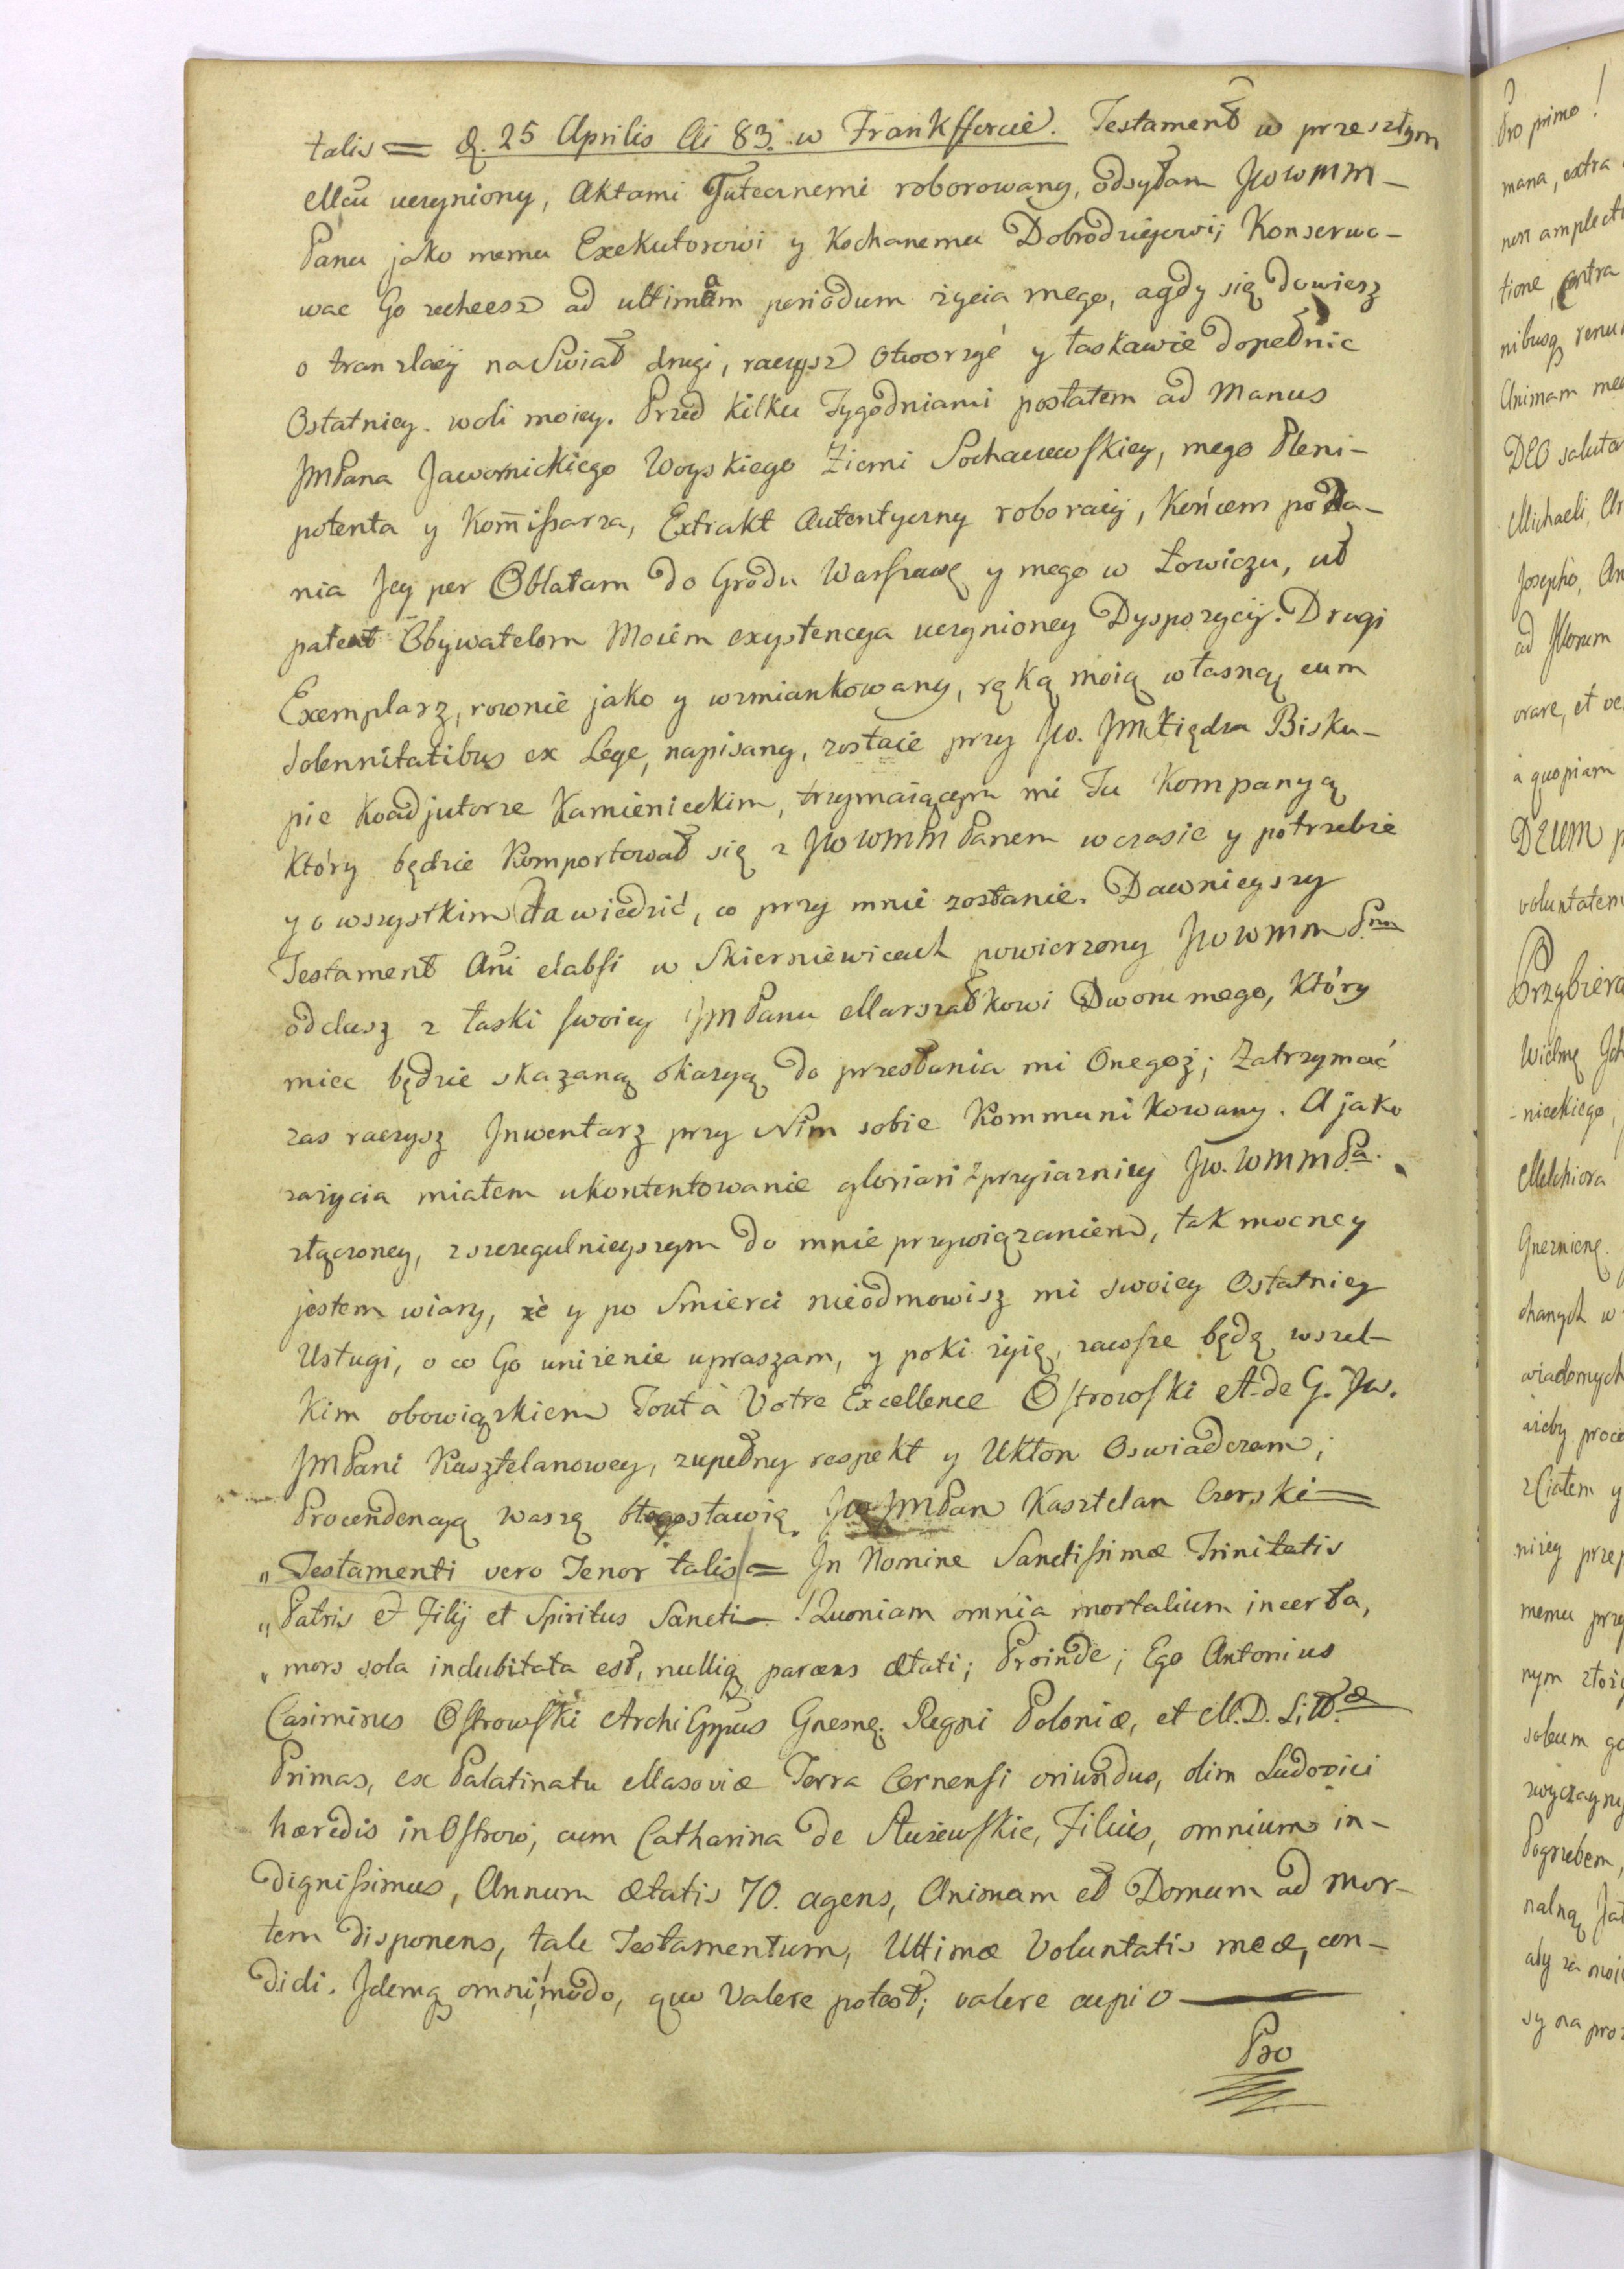 talis = d. 25 Aprilis Ai 83. w Frankfforcie. Testament w przeszłym
Mcu uczyniony, Aktami Tuteznemi roborowany, odsyłam JWWMM-
Panu jako memu Exekutorowi y Kochanemu Dobrodziejowi; Konserwo-
wac Go zechcesz ad ultimam periodum życia mego, a gdy się dowiesz
o tranzlacij na Swiat drugi, raczysz Otworzyć y łaskawie dopełnic
Ostatniey woli moiey. Przed Kilku Tygodniami posłałem ad Manus
JMPana Jawornickiego Woyskiego Ziemi Sochaczewskiey, mego Pleni-
potenta y Kommissarza, Extrakt Autentyczny roboracij, Końcem poda-
nia Jey per Oblatam do Grodu Warszawę y mego w Łowiczu, ut
pateat Obywatelom Moiem exystencya uczynioney Dyspozycij. Drugi
Exemplarz, rownie jako y wzmiankowany, ręką moią własną, cum
solennitatibus ex Lege, napisany, zostaie przy JW. JMKiędza Bisku-
pie Koadjutorze Kamienieckim, trzymaiącym mi Tu Kompanyą
Który będzie Komportował się z JWWMMPanem w czasie y potrzebie
y o wszystkim zawiedzić, co przy mnie zostanie. Dawnieyszy
Testament Ani elabsi w Skierniewicach powierzony JWWMMPnu
oddasz z łaski swoiey JMPanu Marszałkowi Dworu mego, Który
miec będzie skazaną okazyą do przesłania mi Onegoż; Zatrzymać
zas raczysz Jnwentarz przy Nim sobie Kommunikowany. A jako
zażycia miałem ukontentowanie gloriari z przyiazniey JW. WMMPa.
złączoney, z szczegulnieyszym do mnie przywiązaniem, tak mocney
jestem wiary, że y po Smierci nieodmowisz mi swoiey Ostatniey
Usługi, o co Go uniżenie upraszam, y poki żyię, zawsze będę wszel-
Kim obowiązkiem Tout à Votre Excellence Ostrowski A. de G. JW.
JMPani Kasztelanowey, zupełny respekt y Ukłon Oswiadczam;
Procendencyą waszą błogosławię. JW JMPan Kasztelan Czerski =
„Testamenti vero Tenor talis = Jn Nomine Sanctissimæ Trinitatis
„Patris et Filij et Spiritus Sancti – ! Quoniam omnia mortalium incerta,
„mors sola indubitata est, nulliq parcens ætati; Proinde; Ego Antonius
Casimirus Ostrowski ArchiEppus Gnesnę. Regni Poloniæ, et M. D. Litt.æ
Primas, ex Palatinatu Masoviæ Terra Cernensi oriundus, olim Ludovici
hæredis in Ostrow, cum Catharina de Służewskie, Filius, omnium in-
dignissimus, Annum ætatis 70. agens, Animam et Domum ad mor-
tem disponens, tale Testamentum, Ultimæ Voluntatis meæ, con-
didi. Jdemq omni modo, quo Valere potest; valere cupio —
Pro